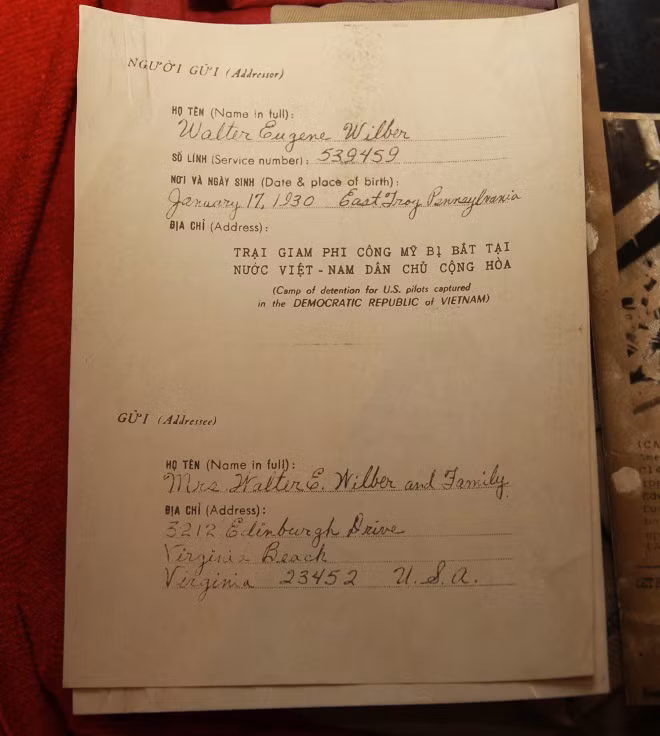 NGƯỜI GỬI (Addressor)
HỌ TÊN (Name in full):
Walter Eugene Wilber
SỐ LÍNH (Service number): 539459
NƠI VÀ NGÀY SINH (Date & place of birth):
January 17, 1930 East Troy Pennsylvania
ĐỊA CHỈ (Address):
TRẠI GIAM PHI CÔNG MỸ BỊ BẮT TẠI
NƯỚC VIỆT-NAM DÂN CHỦ CỘNG HÒA
(Camp of detention for U.S. pilots captured
in the DEMOCRATIC REPUBLIC of VIETNAM)
GỬI (Addressee)
HỌ TÊN (Name in full):
Mrs. Walter E. Wilber and Family
ĐỊA CHỈ (Address):
3212 Edinburgh Drive
Virginia Beach
Virginia 23452 U.S.A.